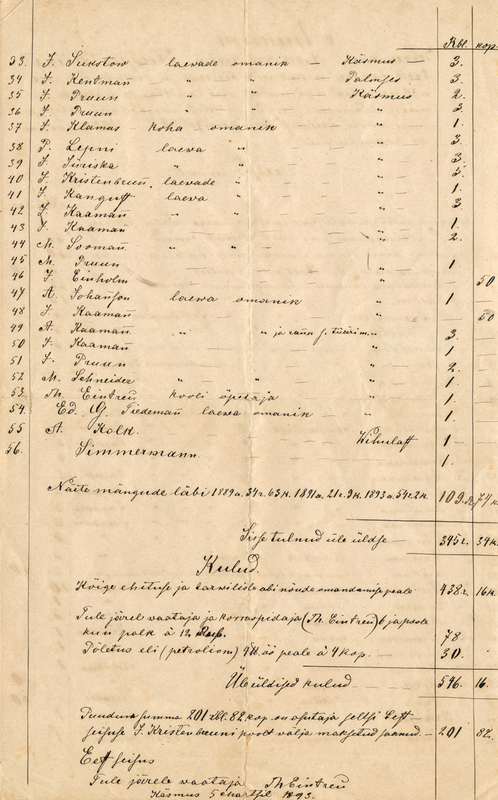 Rbl. kop.
33. J. Sukstow laewade omanik – Käsmus – 3.
34 J. Kentmañ " " Palmses 3.
35 J. Pruun " " Käsmus 2.
36 J. Pruun " " " 3.
37 J. Klamas – koha omanik " 1.
38 P. Lepni laewa " " 3.
39 J. " " " 3.
40 J. Kristenbruñ. laewade " " 5.
41 J. Kangust laewa " " 1.
42 J. Kaamañ " 3
43 J. Kaamañ " 1.
44 M. Soomañ " " " 2.
45 M. Pruun "
46 J. Einholm " 1 50
47 A. Johanson laewa omanik " 1
48 J. Kaamañ " 50
49 A. Kaamañ " " ja rana " 3.
50 J. Kaamañ " 1
51 J. Pruun " 2.
52 M. Schneider " " " 1.
53. Th. Eintreu kooli õpetaja " 1.
54. Ed. G. Tiedemañ laewa omanik – " 1.
55 A. Kolk. Wihulast 1 –
56. Simmermann 1.
Näite mängude läbi 1889a. 34r 63k. 1891a. 21r. 9k. 1893a. 54r. 2k. 109. 74 k.
Sisse tulnud üle üldse – 345r. 34k
Kulud.
Kõige ehituse ja tarwiliste abi nõude omandamise peale 438r. 16k
Tule järel waataja ja korraspidaja (Th. Eintreu) 6 ja poole
kuu palk à 12 78
Põletus eli (petroliom) öö peale à 4 kop. – 30.
Üleüldised kulud 546. 16.
Puuduw summa 201 rbl. 82 kop. on õpetaja seltsi Eest-
seisuse J. Kristenbruni poolt wälja maksetud saanud. – 201 82.
Eestseisus
Tule järele waataja Th Eintreu
Käsmus 1893.